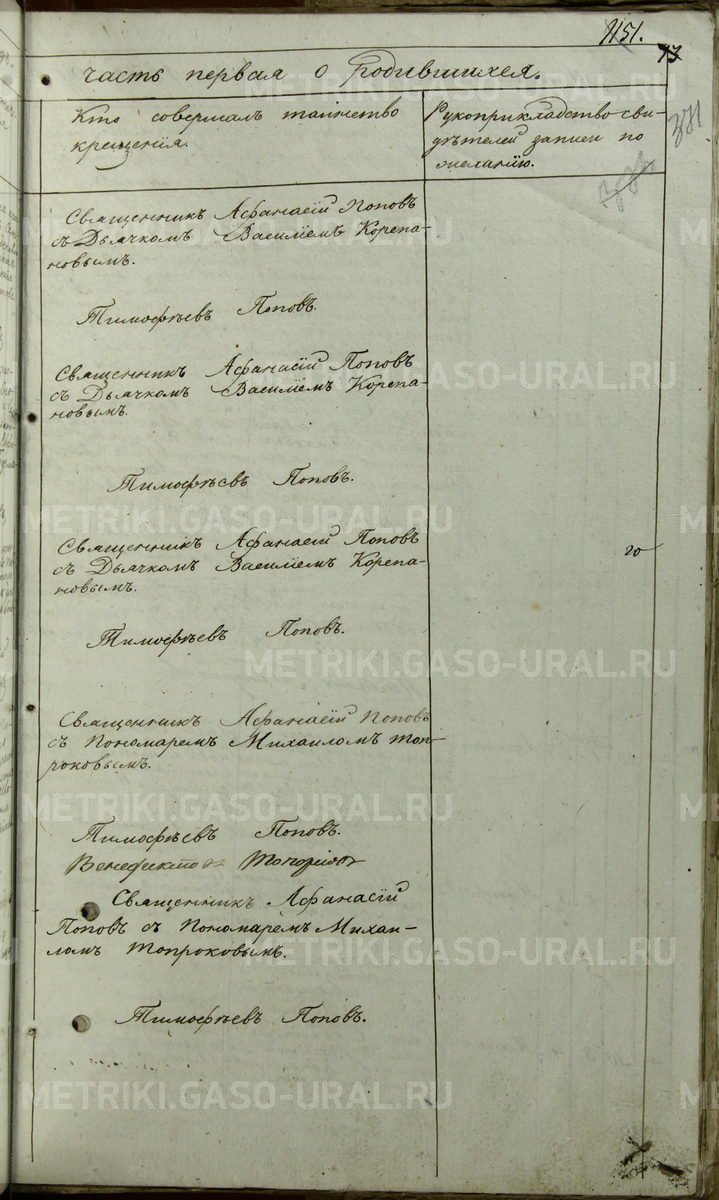 1151.
73
371
часть первая о родившихся.
Кто совершалъ таинство
крещенія.
Рукоприкладство сви-
дѣтелей записи по
желанію.
Священникъ Афанасій Поповъ
съ Дьячкомъ Василіемъ Корепа-
новымъ.
Тимофѣевъ Поповъ.
Священникъ Афанасій Поповъ
съ Дьячкомъ Василіемъ Корепа-
новымъ.
Тимофѣевъ Поповъ.
Священникъ Афанасій Поповъ
съ Дьячкомъ Василіемъ Корепа-
новымъ.
20
Тимофѣевъ Поповъ.
Священникъ Афанасій Поповъ
съ Пономаремъ Михаиломъ Топ-
роковымъ.
Тимофѣевъ Поповъ.
Священникъ Афанасій
Поповъ съ Пономаремъ Михаи-
ломъ Топроковымъ.
Тимофѣевъ Поповъ.
METRIKI.GASO-URAL.RU